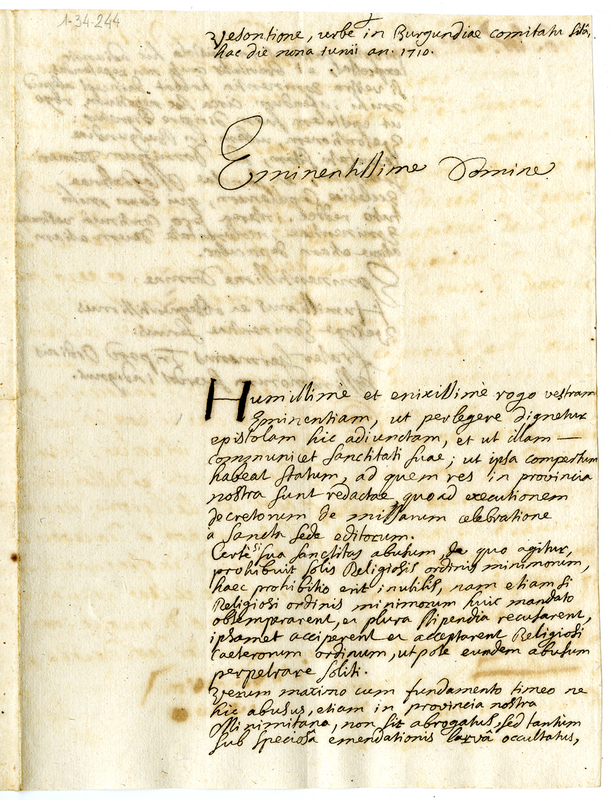 1-34-244
Vesontione, urbe in Burgundiae comitatu sitâ,
hac die nona iunii an. 1710.
Eminentissime Domine
Humillimè et enixissimè rogo vestram
Eminentiam, ut perlegere dignetur
epistolam hic adjunctam, et ut illam
communicet sanctitati suae; ut ipsa compertum
habeat statum, ad quem res in provincia
nostra sunt redactae quoad executionem
decretorum de missarum celebratione
a Sancta Sede editorum.
Certè si sua sanctitas abusum, de quo agitur,
prohibuit solis Religiosis ordinis minimorum,
haec prohibitio erit inutilis, nam etiam si
Religiosi ordinis minimorum huic mandato
obtemperarent, et plura stipendia recusarent,
ipsamet acciperent et acceptarent Religiosi
caeterorum ordinum, utpote eundem abusum
perpetrare soliti.
Verum maximo cum fundamento timeo ne
hic abusus, etiam in provincia nostra
non sit abrogatus, sed tantum
sub speciosa emendationis larvâ occultatus,